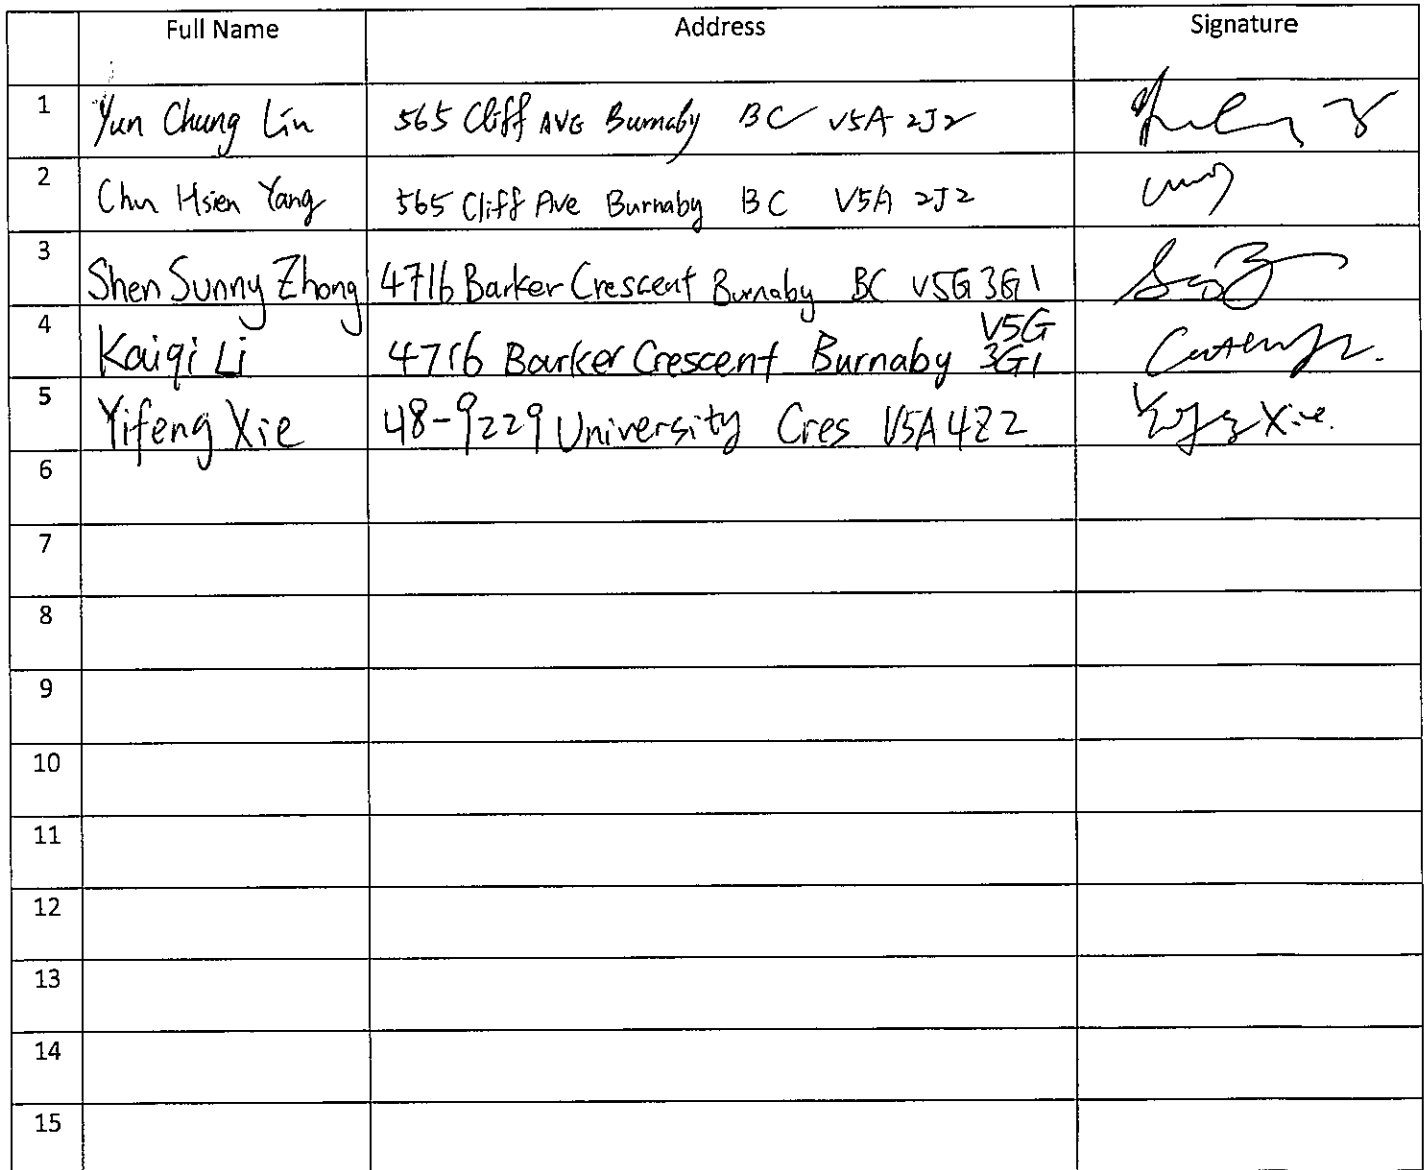 Full Name Address Signature
1 Yun Chung Lin 565 Cliff AVE Burnaby BC V5A 2J2
2 Chun Hsien Yang 565 Cliff Ave Burnaby BC V5A 2J2
3 Shen Sunny Zhong 4716 Barker Crescent Burnaby BC V5G 3G1
4 Kaiqi Li 4716 Barker Crescent Burnaby V5G 3G1
5 Yifeng Xie 48-9229 University Cres V5A 4Z2 Xie.
6
7
8
9
10
11
12
13
14
15